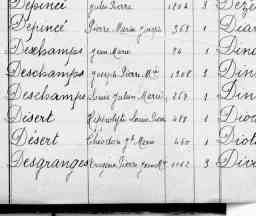 Depincé Jules Pierre 1204 3 Dezé
Depincé Pierre Marie Joseph 368 1 Dian
Deschamps Jean Marie 94 1 Din
Deschamps Joseph Pierre Mie 1308 3 Din
Deschamps Louis Julien Marie 264 1 Din
Désert Hippolyte Louis 488 1 Diot
Désert Théodore Marie 460 1 Diot
Desgranges Eugène Pierre Jean M 1162 3 Div